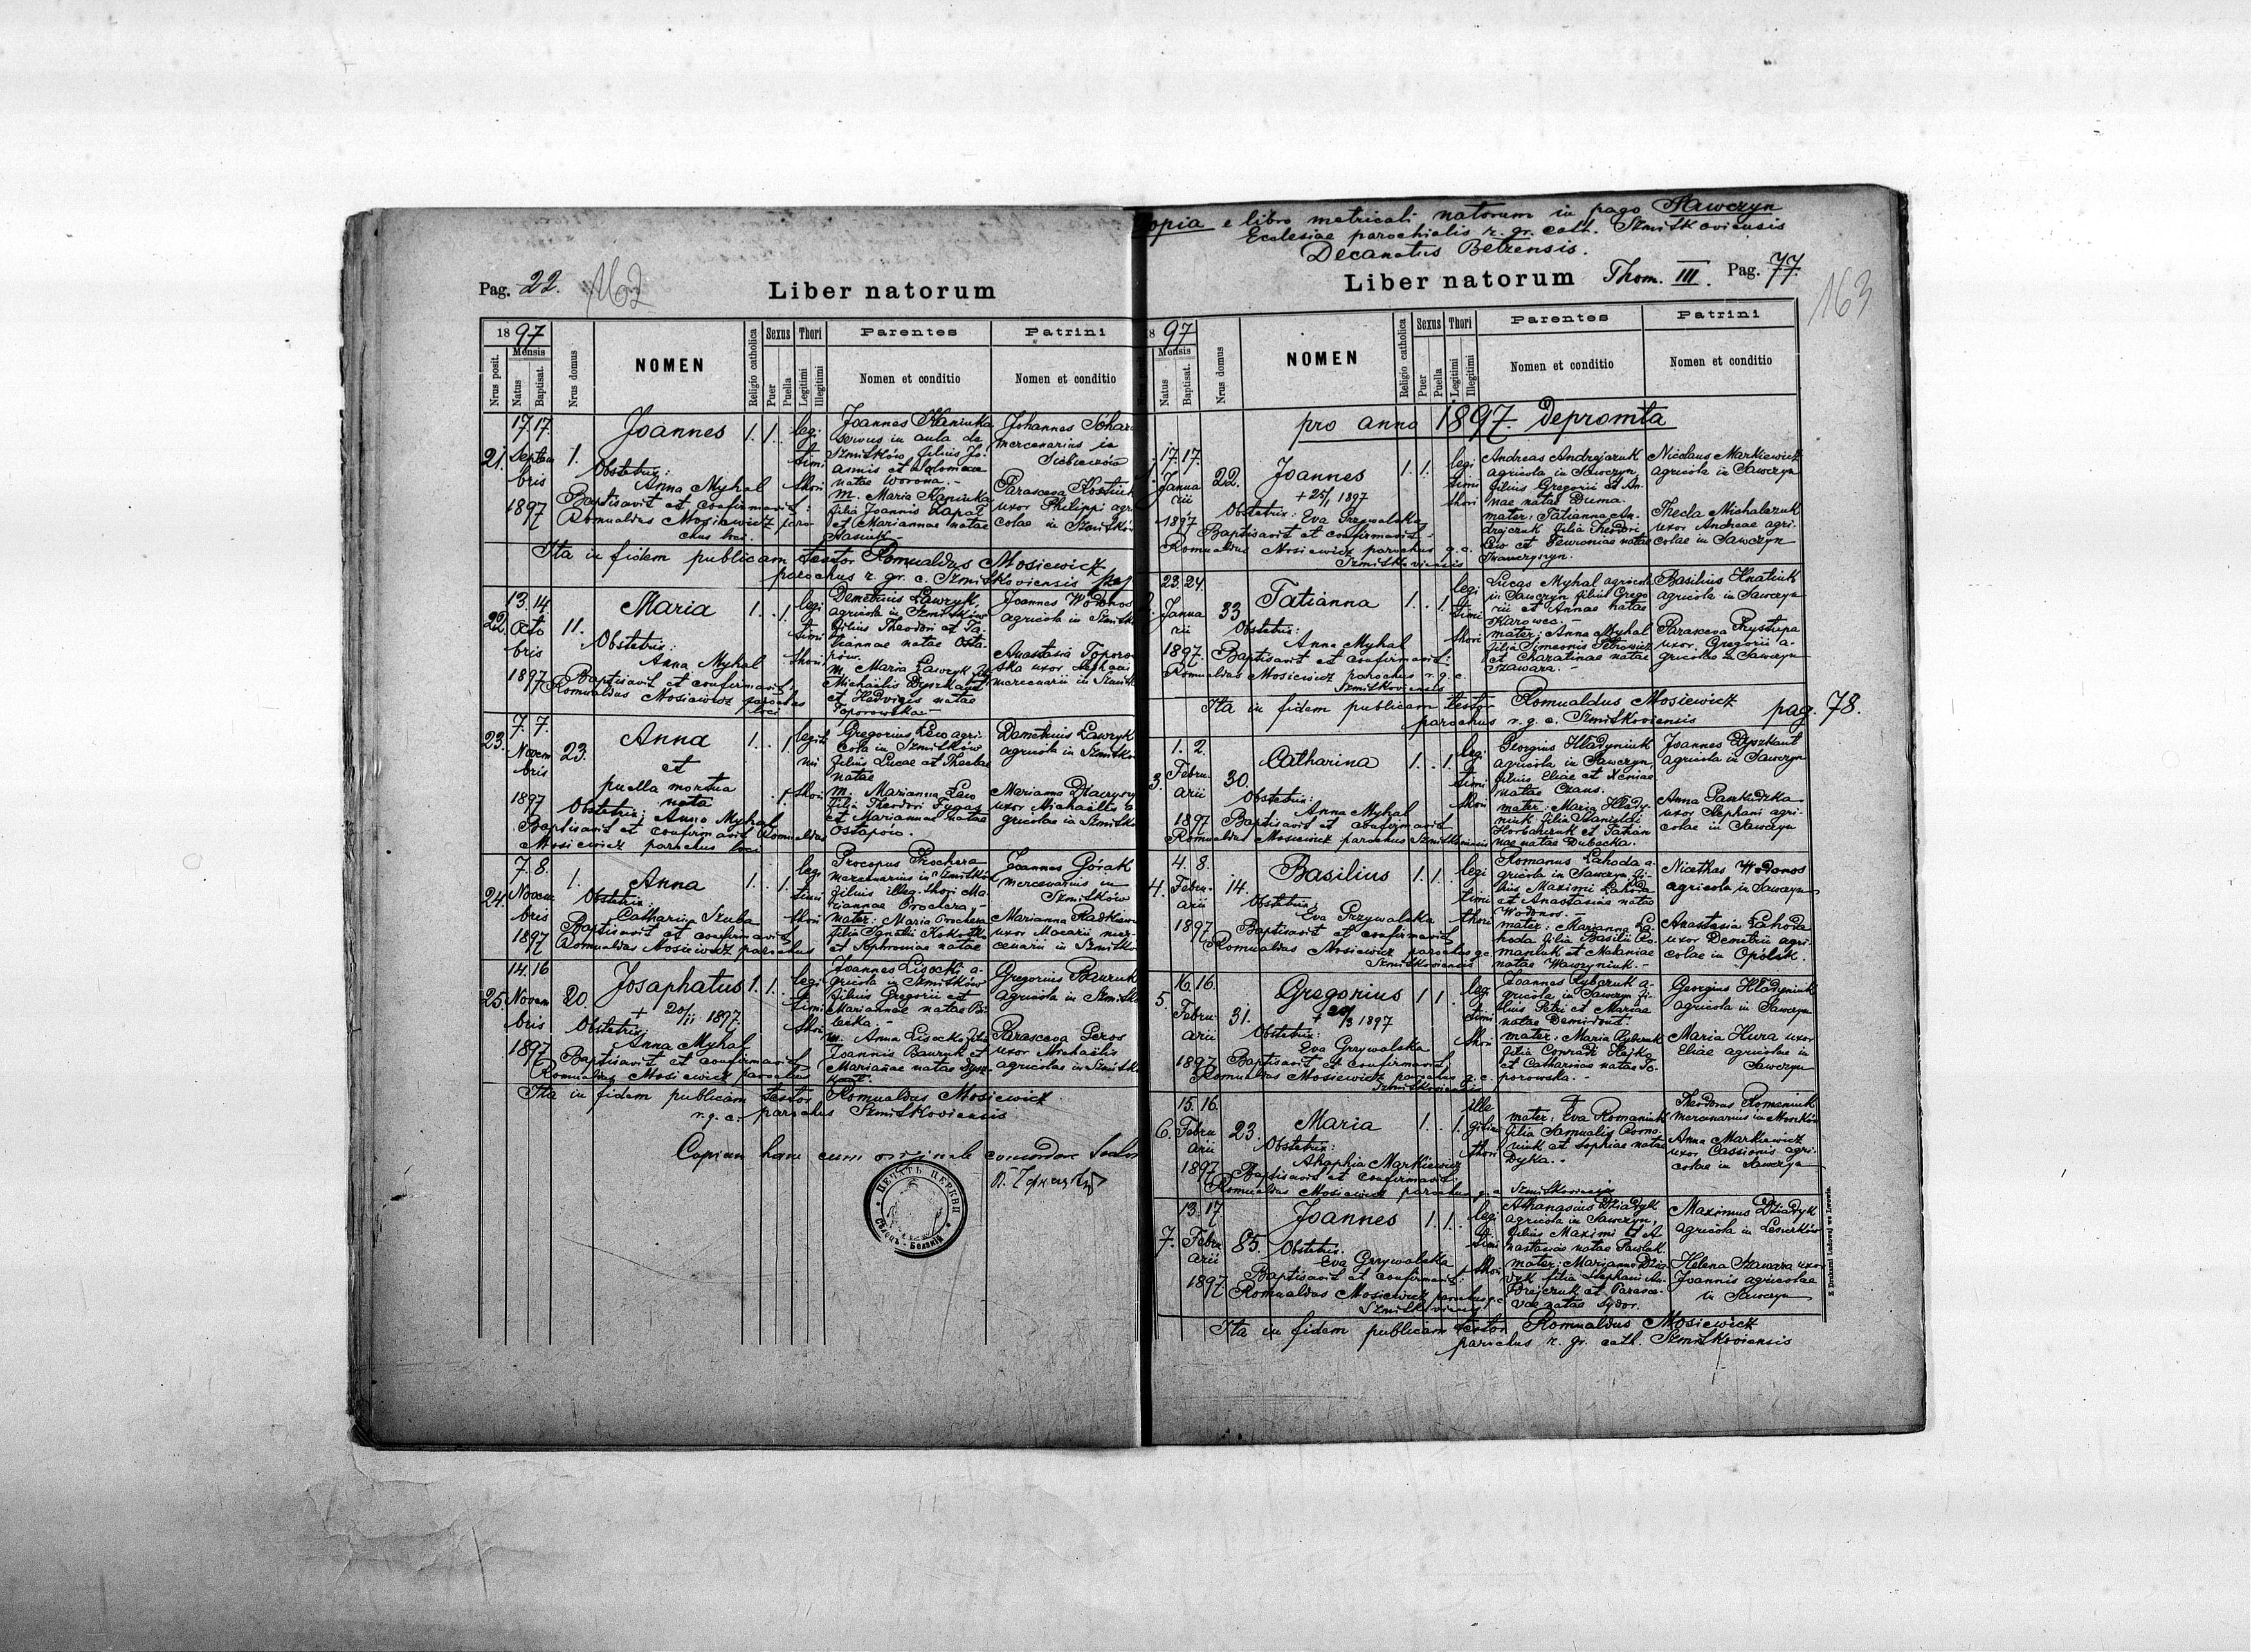 Pag. 22. 162
Liber natorum
1897
Nrus posit.
Mensis
Natus
Baptisat.
Nrus domus
NOMEN
Religio catholica
Sexus
Puer
Puella
Thori
Legitimi
Illegitimi
Parentes
Nomen et conditio
Patrini
Nomen et conditio
21.
17. 17.
Septem
bris
1897
1.
Joannes
Obstetrix:
Anna Myhal
Baptisavit et confirmavit:
Romualdus Mosiewicz paro-
chus loci.
1. 1.
legi
timi
thori
Joannes Kaniuka
servus in aula de
Szmitków filius Jo-
annis et Salomeae
natae Worona.-
m. Maria Kaniuka
filia Joannis Łapat
et Mariannae natae
Johannes
mercenarius in
Parasceva
uxor Philippi agri
colae in Szmitków
Ita in fidem publicam testor Romualdus Mosiewicz
parochus r. gr. c. Szmitkoviensis
22.
13. 14.
Octo
bris
1897
11.
Maria
Obstetrix:
Anna Myhal
Baptisavit et confirmavit
Romualdus Mosiewicz parochus
loci
1. . 1.
legi
timi
thori
Demetrius Ławryk,
agricola in Szmitków
filius Theodori et Ta-
tiannae natae Osta-
pów.
m. Maria Ławryk fil.
Michaëlis Dyszkant
et Hedvigis natae
Toporowska-
Joannes Wodonos
agricola in Szmitk
Anastasia Toporo
ska uxor Stephani
mercenarii in Szmitk
23.
7. 7.
Novem
bris
1897
23.
Anna
et
puella mortua
nata
Obstetrix: Anna Myhal
Baptisavit et confirmavit Romualdus
Mosiewicz parochus loci
1. . 1.
. 1.
legiti
mi
thori
Gregorius Lew agri-
cola in Szmitków
filius Lucae et Theclae
natae
m. Marianna Lew
filia Theodori Fugas
et Mariannae natae
Ostapów.
Demetrius Ławryk
agricola in Szmitków
Marianna
uxor Michaëlis a
gricolae in Szmitk
24.
7. 8.
Novem
bris
1897
1.
Anna
Obstetrix:
Catharina Szuba
Baptisavit et confirmavit
Romualdus Mosiewicz parochus
1. . 1.
legi
timi
thori
Procopus Prochera
mercenarius in Szmitków
filius illeg. thori Ma-
riannae Prochera,-
mater: Maria Prochera
filia Ignatii Kokoszko
et Sophroniae natae
Joannes Górak
mercenarius in
Szmitków
Marianna Radkiew
uxor Macarii mer-
cenarii in Szmitków
25.
14. 16
Novem
bris
1897
20.
Josaphatus
+ 20/11 1897
Obstetrix:
Anna Myhal
Baptisavit et confirmavit
Romualdus Mosiewicz parochus
1. 1.
legi
timi
thori
Joannes Lisocki a-
gricola in Szmitków
filius Gregorii et
Mariannae natae Bi-
lecka -
m. Anna Lisocka filia
Joannis Bauryk et
Mariannae natae Dysz-
kant.
Gregorius Bauruk
agricola in Szmitk
Parasceva Geros
uxor Michaëlis
agricolae in Szmitk
Ita in fidem publicam testor Romualdus Mosiewicz
r. g. c. parochus Szmitkoviensis
Copiam hanc cum originale concordare
ПЕЧАТЬ ЦЕРКВИ
Copia e libro metricali natorum in pago Sawczyn
Ecclesiae parochialis r. gr. cath. Szmitkoviensis
Decanatus Belzensis.
Liber natorum Thom. III. Pag. 77.
163
1897
Mensis
Natus
Baptisat.
Nrus domus
NOMEN
Religio catholica
Sexus
Puer
Puella
Thori
Legitimi
Illegitimi
Parentes
Nomen et conditio
Patrini
Nomen et conditio
pro anno 1897. depromta
17. 17.
Janua
rii
1897
22.
Joannes
+ 25/1 1897
Obstetrix: Eva Grzywalska
Baptisavit et confirmavit-
Romualdus Mosiewicz parochus g. c.
Szmitkoviensis
1. 1.
legi
timi
thori
Andreas Andrejczuk
agricola in Sawczyn,
filius Gregorii et An-
nae natae Duma.
mater: Tatianna An-
drejczuk filia Theodori
Lew et Fewroniae natae
Iwanczyszyn.
Nicolaus Markiewicz
agricola in Sawczyn
Thecla Michalczuk
uxor Andreae agri-
colae in Sawczyn
23. 24.
Janua
rii
1897
33
Tatianna
Obstetrix:
Anna Myhal
Baptisavit et confirmavit:
Romualdus Mosiewicz parochus r. g. c.
Szmitkoviensis
1. . 1.
legi
timi
thori
Lucas Myhal agricola
in Sawczyn filius Grego
rii et Annae natae
Karowec. -
mater: Anna Myhal
filia Simeonis Petrowicz
et Charatinae natae
Szawara. -
Basilius Hnatiuk
agricola in Sawczyn
Parasceva Przystupa
uxor Gregorii a-
gricolae in Sawczyn
Ita in fidem publicam testor Romualdus Mosiewicz
parochus r. g. c. Szmitkoviensis
pag. 78.
3.
1. 2.
Febru-
arii
1897
30.
Catharina
Obstetrix:
Anna Myhal
Baptisavit et confirmavit
Romualdus Mosiewicz parochus Szmitkoviensis
1. . 1.
legi
timi
thori
Georgius Hładyniuk
agricola in Sawczyn,
filius Eliae et Xeniae
natae Czaus.
mater: Maria Hłady-
niuk filia Stanislai
Horbaczuk et Tatian
nae natae Dubecka.
Joannes Dyszkant
agricola in Sawczyn
Anna
uxor Stephani agri-
colae in Sawczyn
4.
4. 8.
Febru-
arii
1897
14.
Basilius
Obstetrix:
Eva Grzywalska
Baptisavit et confirmavit
Romualdus Mosiewicz parochus g. c.
Szmitkoviensis
1. 1.
legi
timi
thori
Romanus Lahoda a-
gricola in Sawczyn fi-
lius Maximi Lahoda
et Anastasiae natae
Wodonos. -
mater: Marianna La-
hoda filia Basilii Ro-
maniuk et Melaniae
natae Wawryniuk. -
Nicethas Wodonos
agricola in Sawczyn
Anastasia Lahoda
uxor Demetrii agri-
colae in Opolsk.
5.
16. 16.
Febru-
arii
1897
31.
Gregorius
1897
Obstetrix:
Eva Grzywalska
Baptisavit et confirmavit
Romualdus Mosiewicz parochus g. c.
Szmitkoviensis
1 1.
legi
timi
thori
Joannes Rybczuk a-
gricola in Sawczyn fi-
lius Petri et Mariae
natae Demidont.
mater: Maria Rybczuk
filia Conradi Hajko
et Catharinae natae To-
porowska. -
Georgius Hładyniuk
agricola in Sawczyn
Maria Hura uxor
Eliae agricolae in
Sawczyn
6.
15. 16.
Febru
arii
1897
23.
Maria
Obstetrix:
Ahaphia Markiewicz
Baptisavit et confirmavit:
Romualdus Mosiewicz parochus g. c. Szmitkoviensis
1. . 1.
ille
gitimi
thori
mater: Eva Romaniuk
filia Samuelis Roma-
niuk et Sophiae natae
Dyka. -
Theodorus Romaniuk
mercenarius in Moszków
Anna Markiewicz
uxor Cassionis agri-
colae in Sawczyn
7.
13. 17.
Febru
arii
1897
85.
Joannes
Obstetrix:
Eva Grzywalska
Baptisavit et confirmavit:
Romualdus Mosiewicz parochus g. c.
Szmitkoviensis
1. 1.
legi
timi
thori
Athanasius Dziadyk
agricola in Sawczyn,
filius Maximi et A-
nastasiae natae Pawluk.
mater: Marianna Dzia-
dyk filia Stephani An-
drejczuk et Parasce-
vae natae Sydor.
Maximus Dziadyk
agricola in Leszczków
Helena Szawara uxor
Joannis agricolae
in Sawczyn
Ita in fidem publicam testor Romualdus Mosiewicz
parochus r. gr. cath. Szmitkoviensis
Z Drukarni Ludowej we Lwowie.